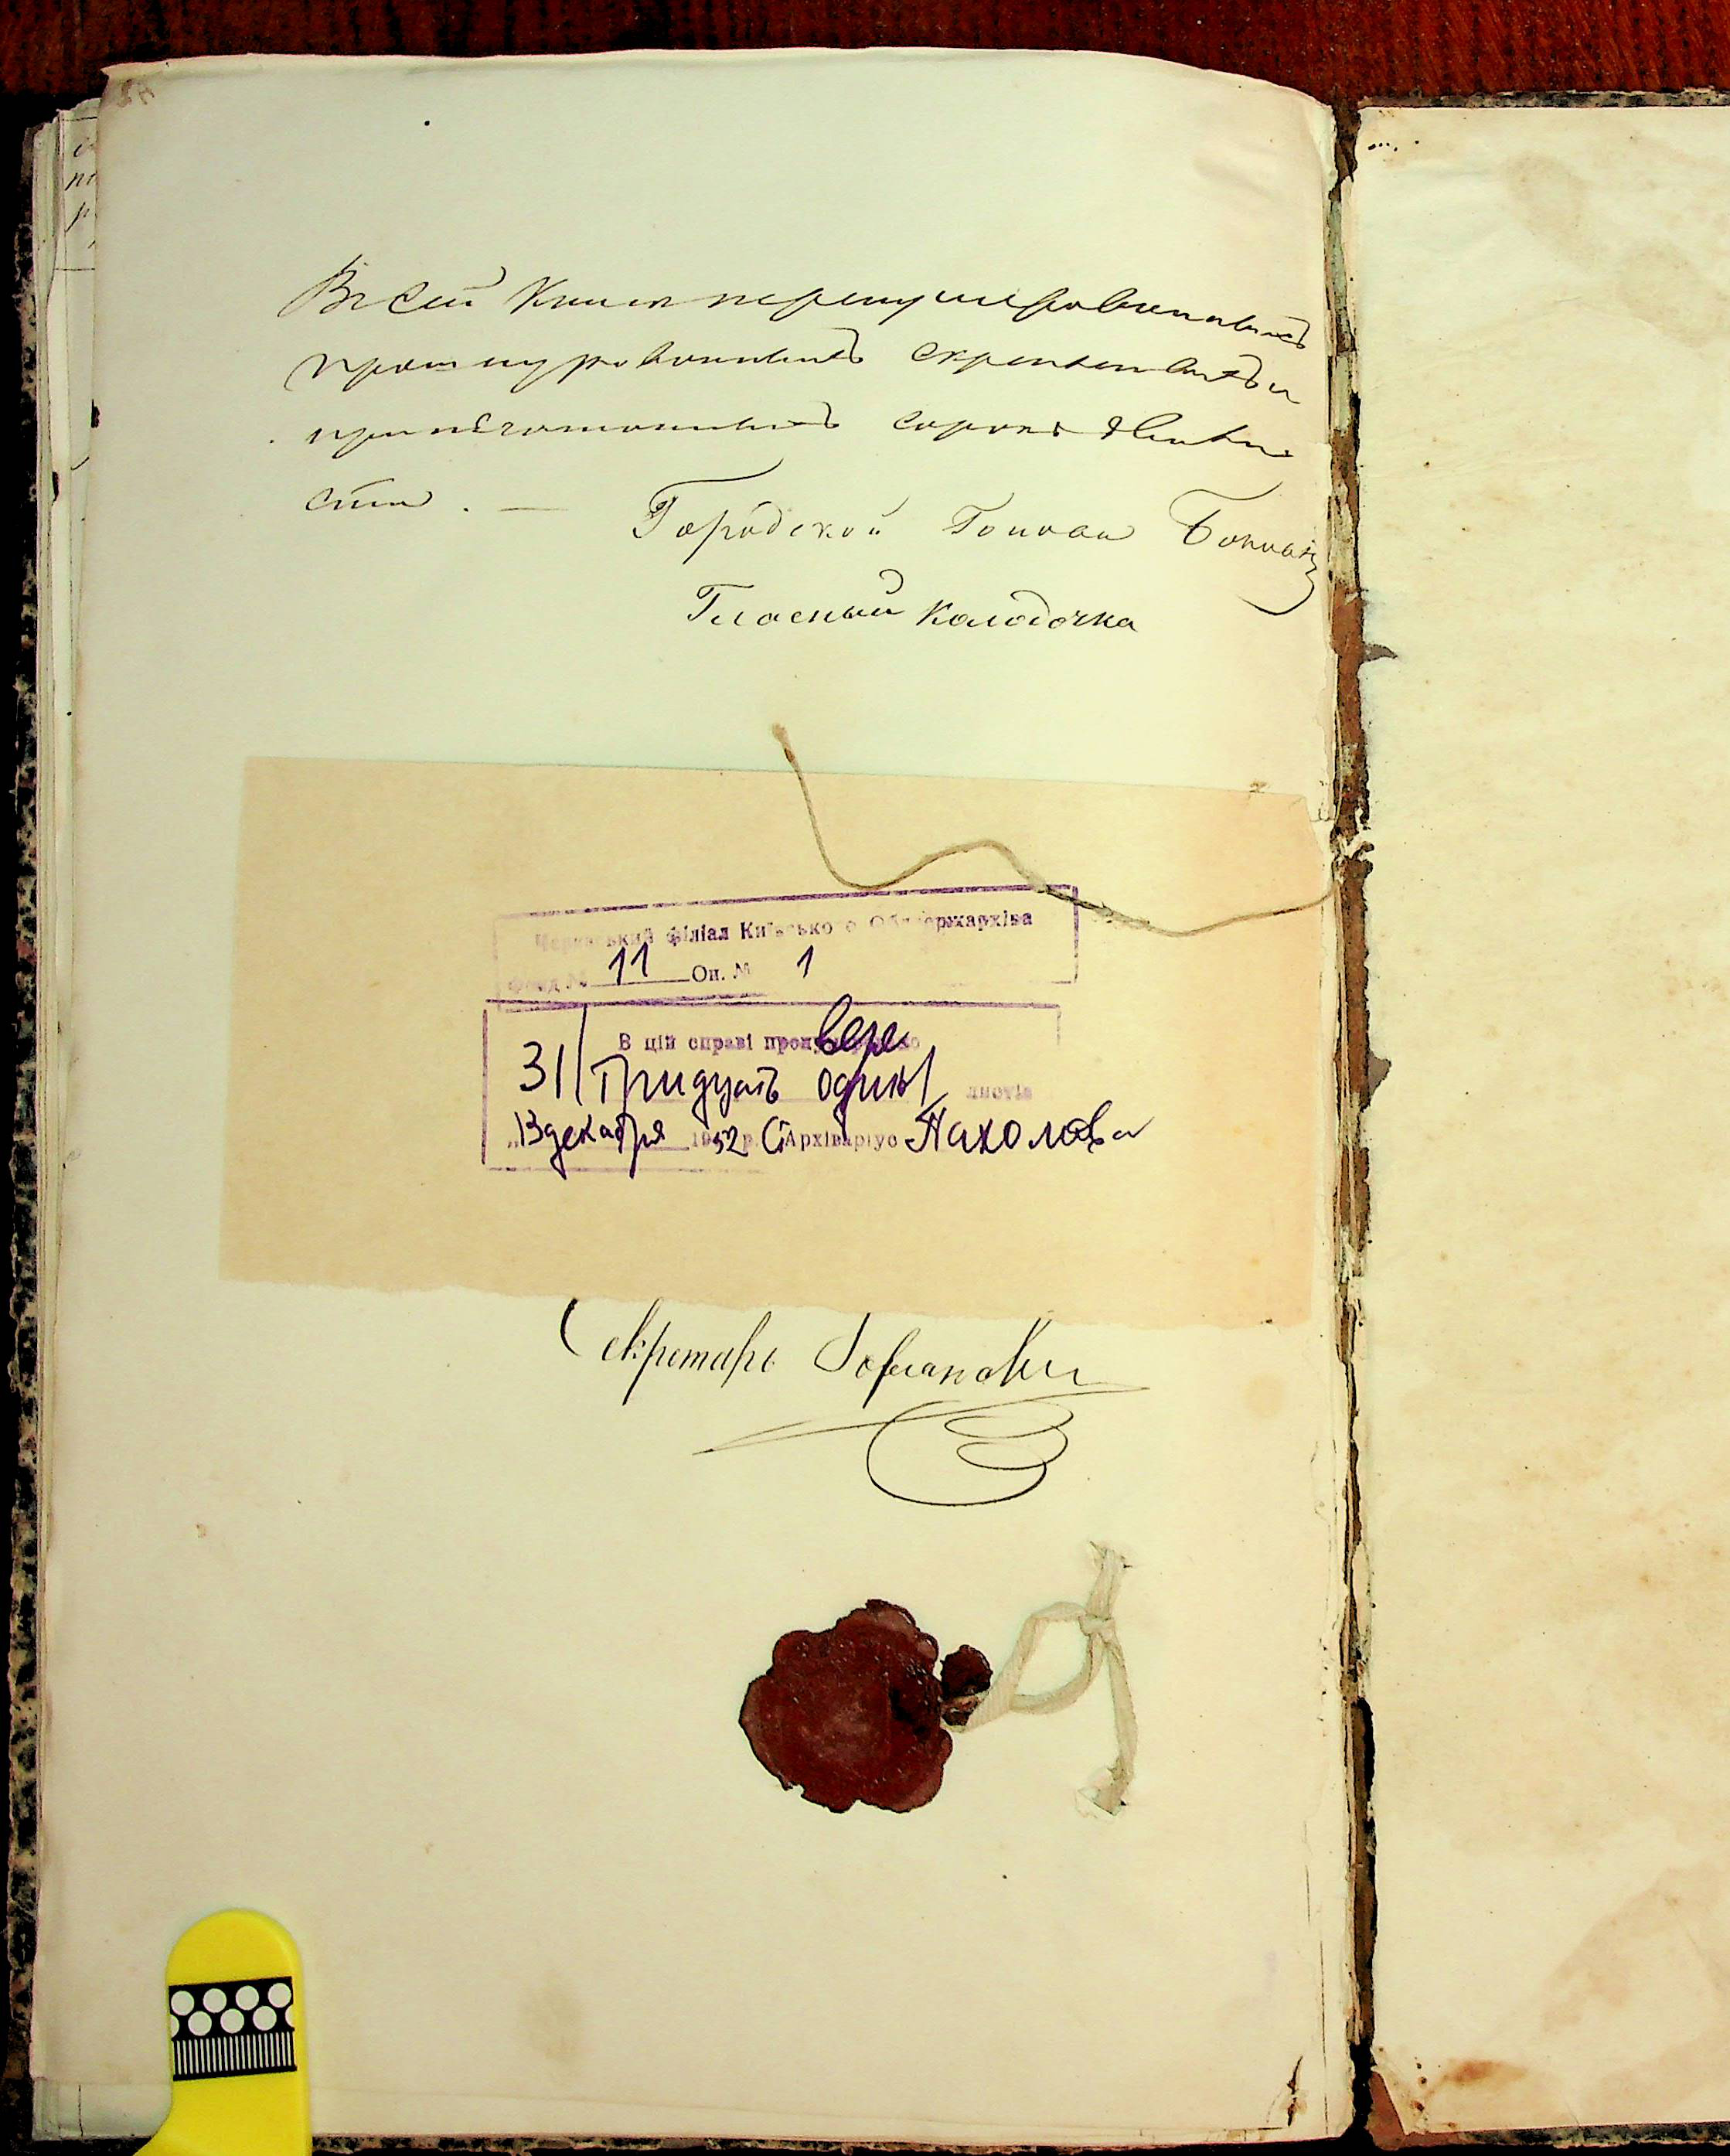 Въ сей Книги перенумерованныхъ
прошнурованныхъ скрепленныхъ и
припечатанныхъ сорокъ два ли
ста. —
Городской Голова
Гласный Колодочка
Черкаський філіал Київського Облдержархіва
Фонд № 11 Оп. № 1
В цій справі пронумеровано
вере
31 / Тридцать один / листів
„13 декабря 1952 р. Ст Архіваріус Пахолова
Секретарь